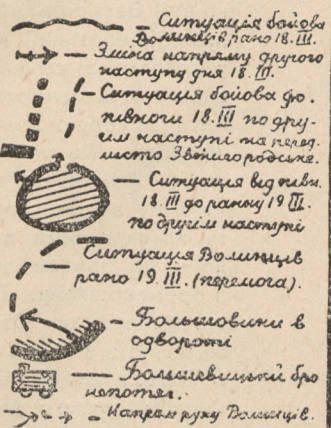 — Ситуація бойова
Волинців рано 18. III.
— Зміна напряму другого
наступу дня 18. III.
— Ситуація бойова до
півночи 18. III по дру-
гім наступі на перед.
місто Звенигородське.
— Ситуация від півн.
18. III до ранку 19 III.
по другім наступі
Ситуація Волинців
рано 19. III. (перемога).
— Большовики в
одвороті
— Большевицький бро
непотяг.
— Напрям руху Волинців.